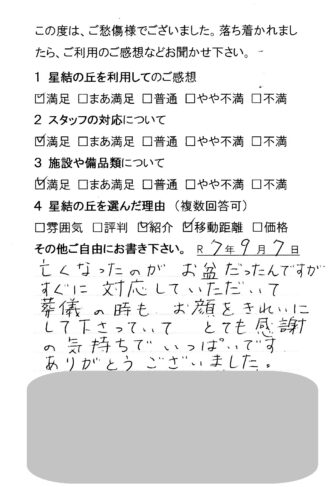 この度は、ご愁傷様でございました。落ち着かれまし
たら、ご利用のご感想などお聞かせ下さい。
1 星結の丘を利用してのご感想
☑満足 □まあ満足 □普通 □やや不満 □不満
2 スタッフの対応について
☑満足 □まあ満足 □普通 □やや不満 □不満
3 施設や備品類について
☑満足 □まあ満足 □普通 □やや不満 □不満
4 星結の丘を選んだ理由（複数回答可）
□雰囲気 □評判 ☑紹介 ☑移動距離 □価格
その他ご自由にお書き下さい。 R 7年9月7日
亡くなったのが お盆だったんですが
すぐに 対応していただいて
葬儀の時も お顔をきれいに
して下さっていて とても感謝
の気持ちで いっぱいです
ありがとう ございました。